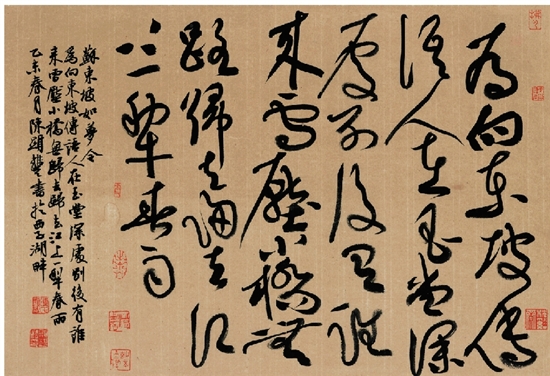 為向東坡傳
語人在玉堂深
處別後有誰
來雪壓小橋無
路歸去歸去江
上一犁春雨
蘇東坡如夢令
為向東坡傳語人在玉堂深處別後有誰
來雪壓小橋無歸去歸去江上一犁春雨
乙未春月陳書於西子湖畔